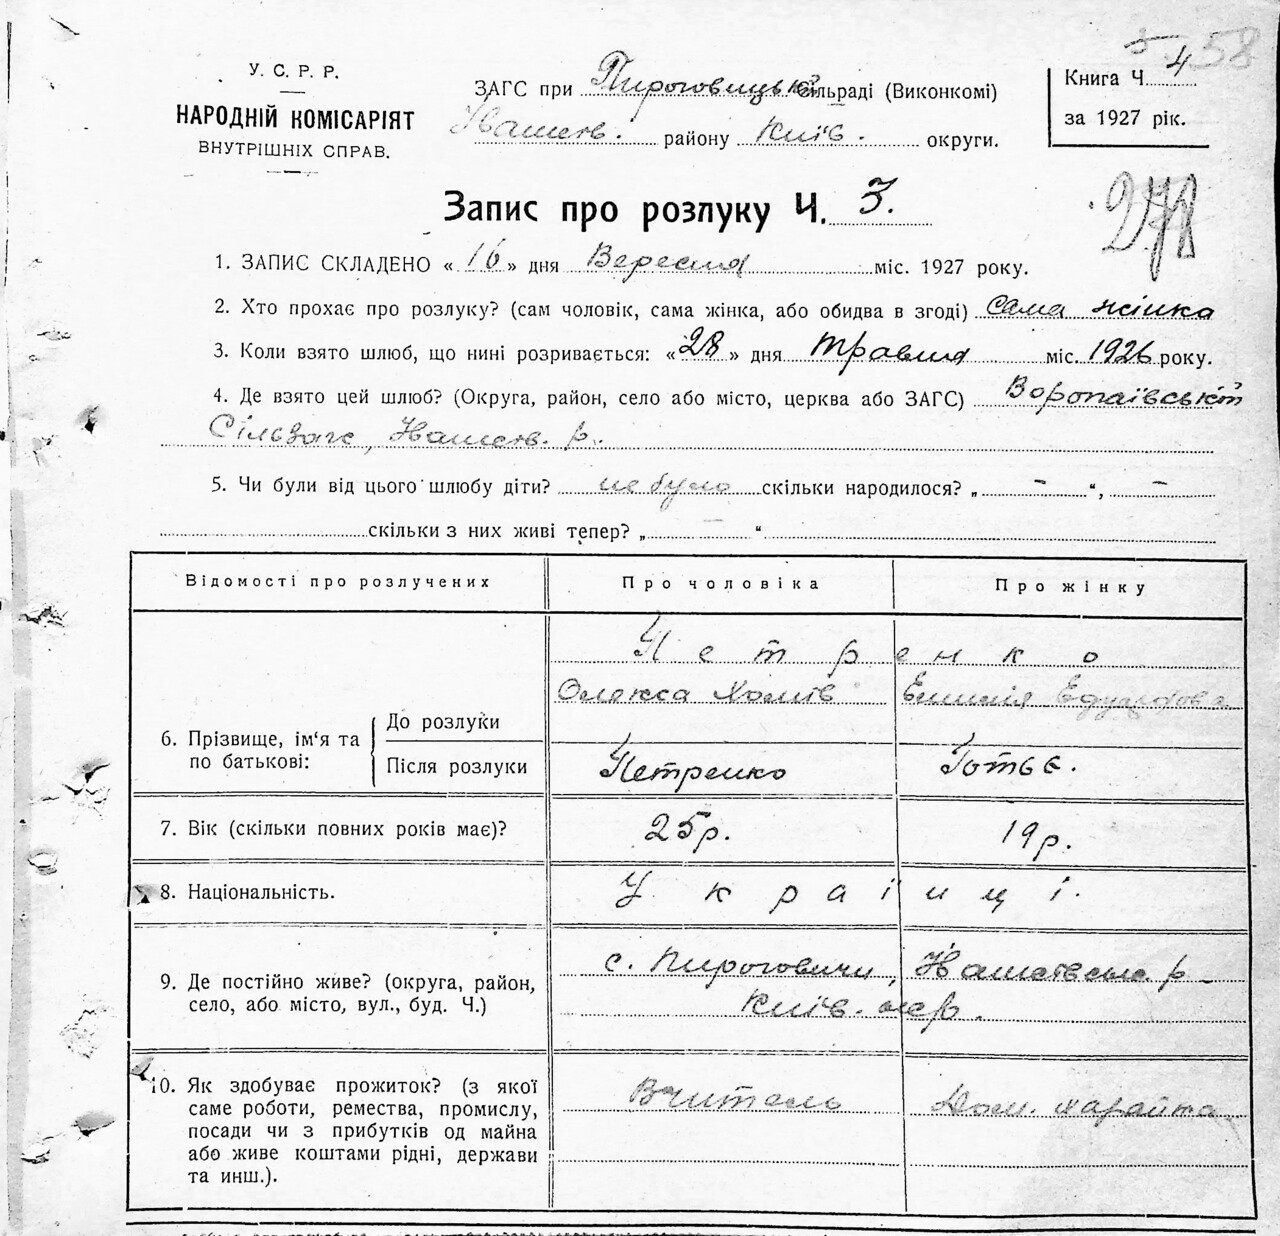 58
У. С. Р. Р.
НАРОДНІЙ КОМІСАРІЯТ
ВНУТРІШНІХ СПРАВ.
ЗАГС при Пироговицьк. Сільраді (Виконкомі)
району Київ. округи.
Книга Ч 4
за 1927 рік.
Запис про розлуку Ч. 3.
278
1. ЗАПИС СКЛАДЕНО « 16 » дня Вересня міс. 1927 року.
2. Хто прохає про розлуку? (сам чоловік, сама жінка, або обидва в згоді) сама жінка
3. Коли взято шлюб, що нині розривається: « 28 » дня Травня міс. 1926 року.
4. Де взято цей шлюб? (Округа, район, село або місто, церква або ЗАГС) Воропаївськім
Сільзагс, р.
5. Чи були від цього шлюбу діти? не було скільки народилося? „ — “, —
скільки з них живі тепер? „ — “
Відомості про розлучених
Про чоловіка
Про жінку
6. Прізвище, ім‘я та по батькові:
До розлуки
Після розлуки
Петренко
Олекса Хомів
Емилія Едуардова
Петренко
Готьє.
7. Вік (скільки повних років має)?
25 р.
19 р.
8. Національність.
Українці.
9. Де постійно живе? (округа, район,
село, або місто, вул., буд. Ч.)
с. Пироговичи, р
Київ. окр.
10. Як здобуває прожиток? (з якої
саме роботи, ремества, промислу,
посади чи з прибутків од майна
або живе коштами рідні, держави
та инш.).
Вчитель
Дом.